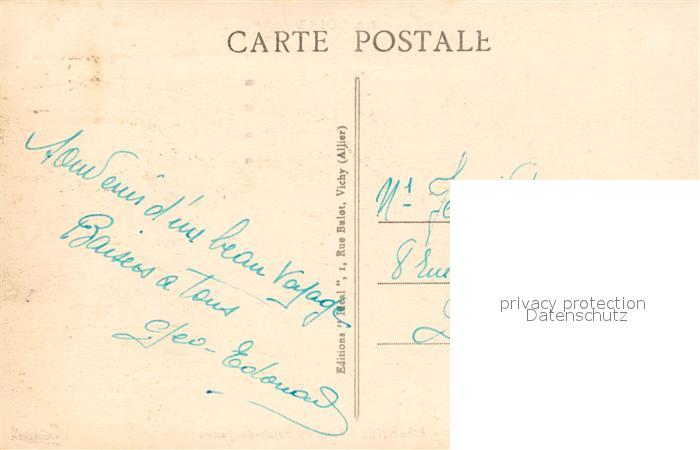 CARTE POSTALE
Souvenirs d'un beau Voyage
Baisers a Tous
Geo-Edouard
Editions "Idéal", 1, Rue Bulot, Vichy (Allier)
8 Rue
privacy protection
Datenschutz